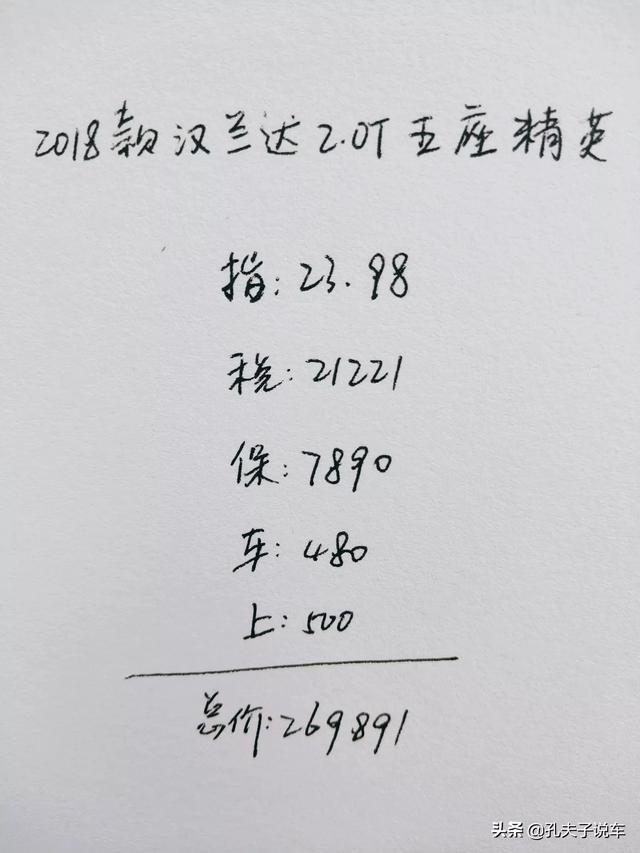 2018款汉兰达2.0T五座精英
指:23.98
税:21221
保:7890
车:480
上:500
总价:269891
头条 @孔夫子说车